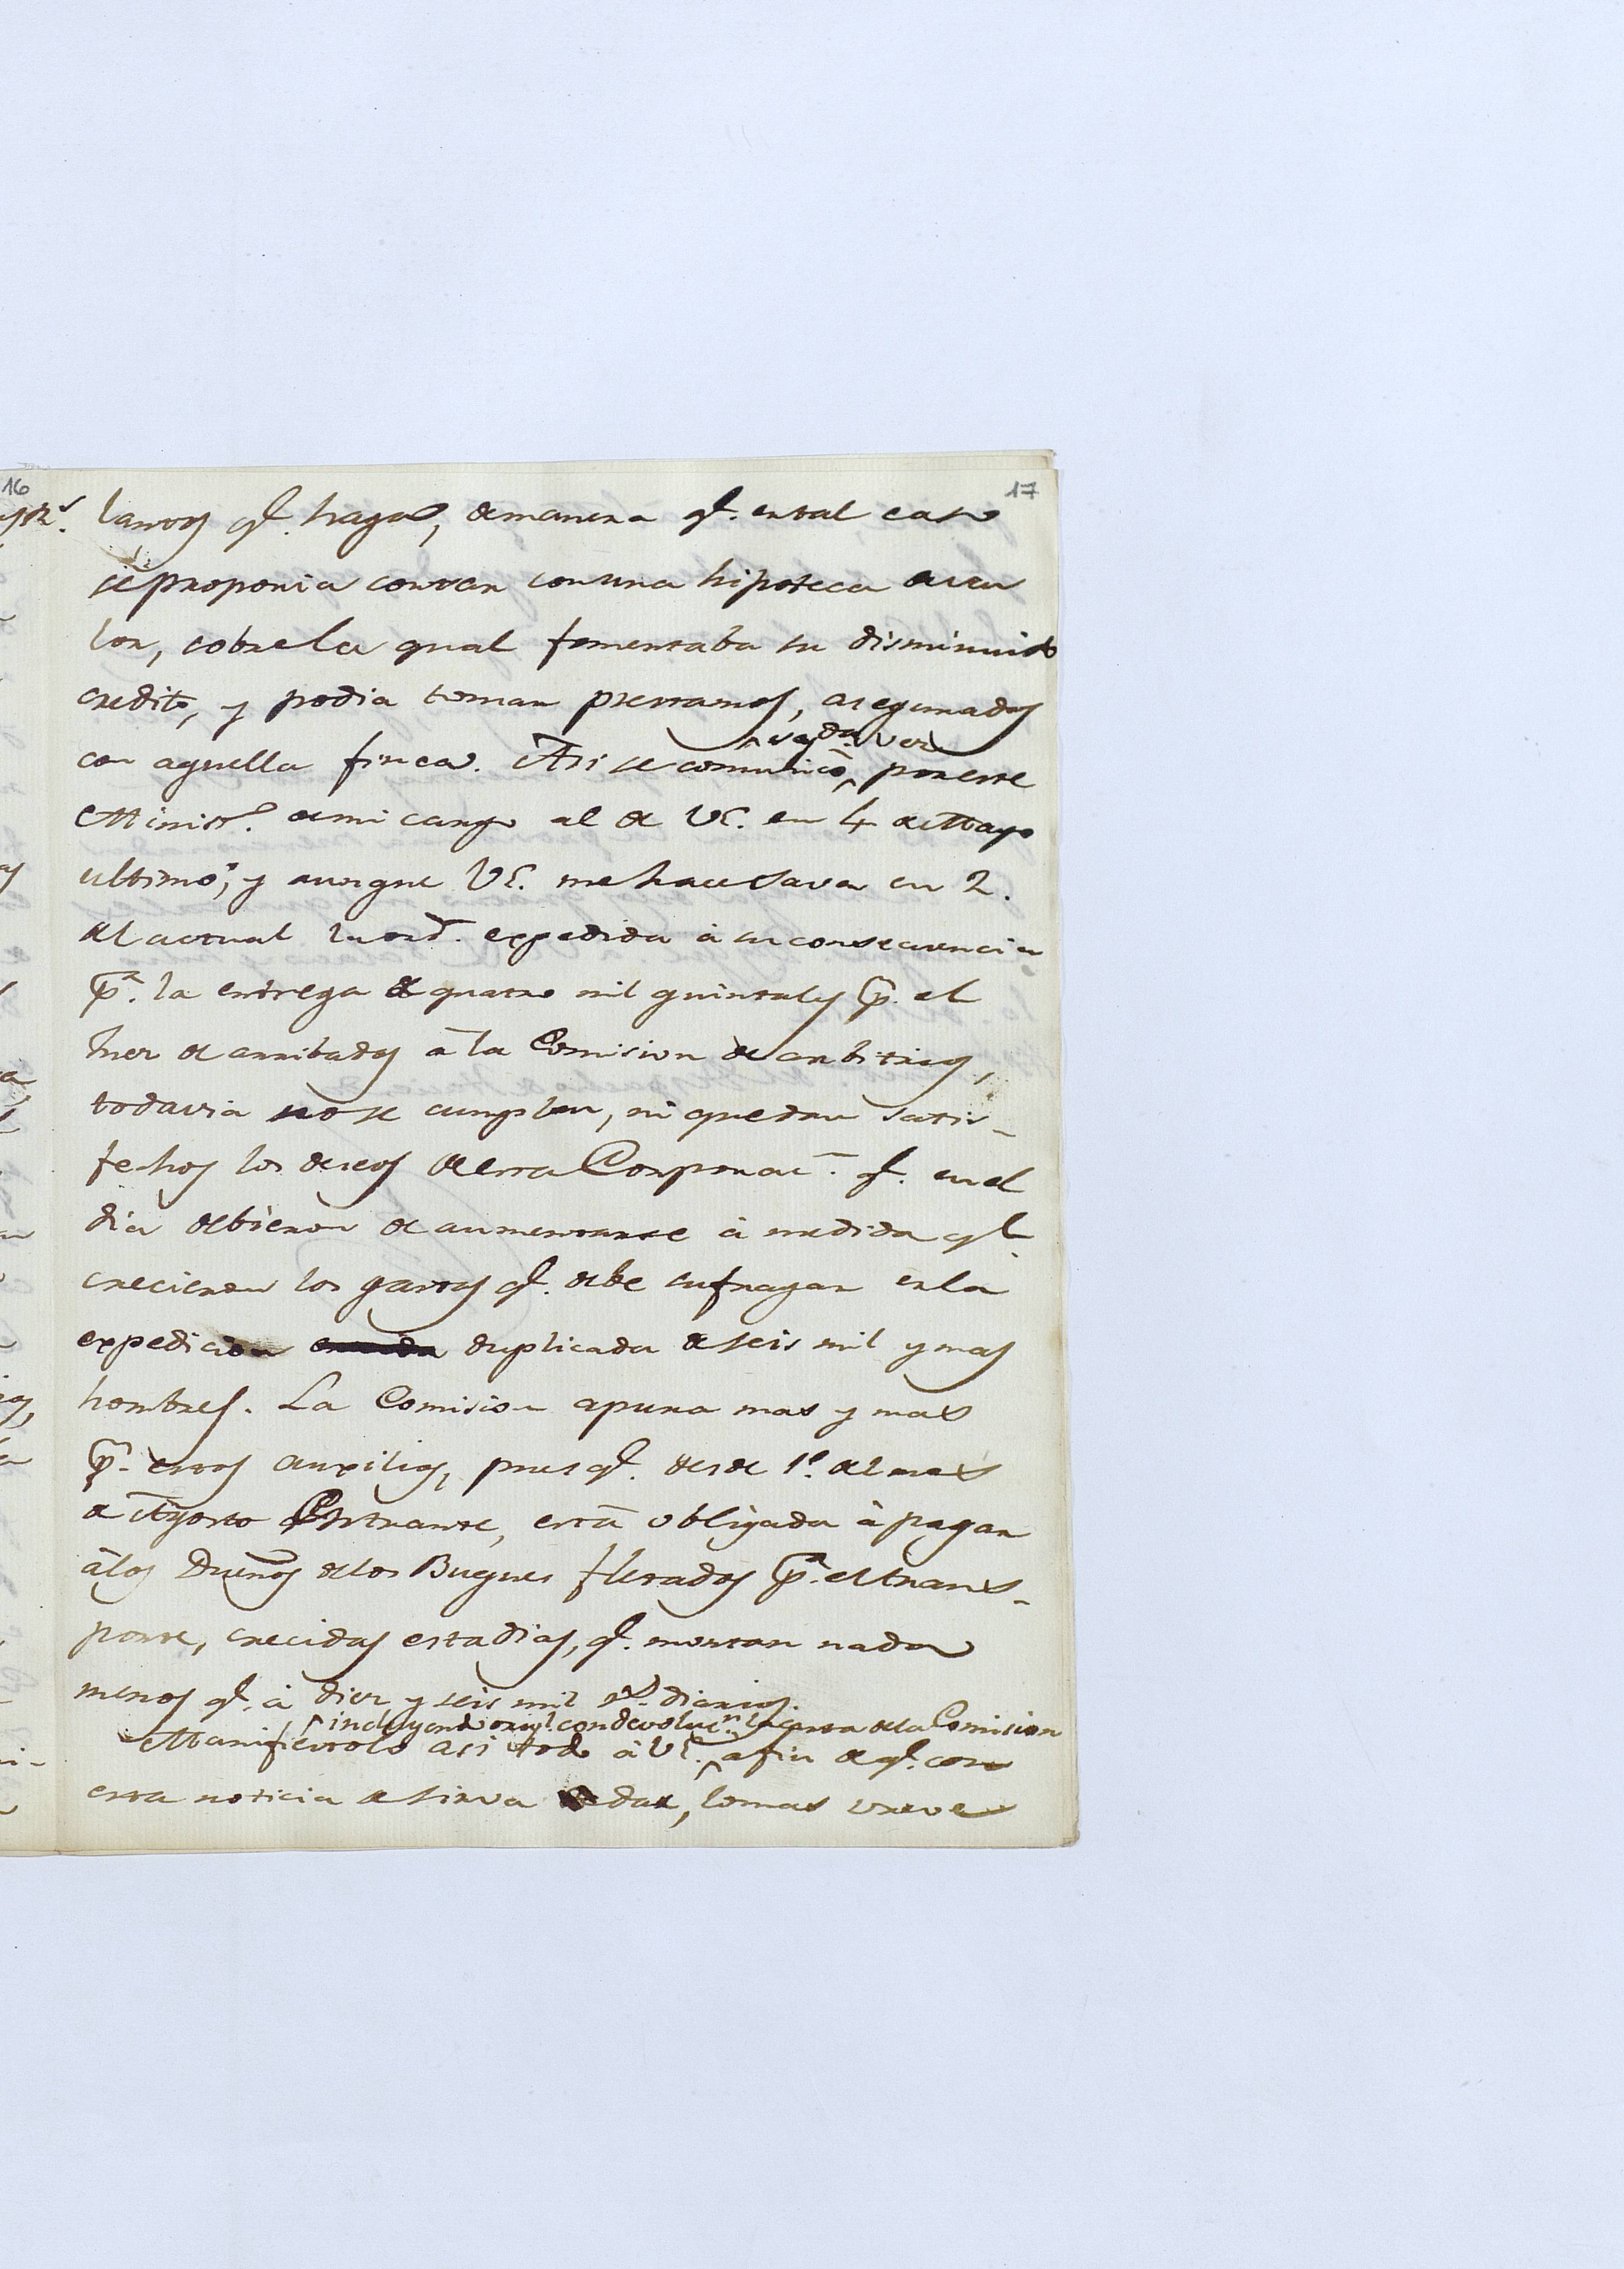 16
17
lantos qe. haga, de manera qe. en tal caso
se proponia contar con una hipoteca de va
lor, sobre la qual fomentaba su disminuido
credito, y podia tomar prestamos, asegurados
con aquella finca. Asi se comunicó ^segda. vez^ por este
Ministo. de mi cargo al de VE. en 4 de Mayo
ultimo, y aunque VE. me hace saver en 2.
del actual la ord. expedida á su consecuencia
pa. la entrega de quatro mil quintales pr. el
Juez de arribadas á la Comision de arbitrios,
todavia no se cumplen, ni quedan satis-
fechos los deseos de esta Corporac. qe. en el
dia debieron de aumentarse á medida qe.
crecieron los gastos qe. debe sufragar en la
expedicion duplicada de seis mil y mas
hombres. La Comision apura mas y mas
pr. estos auxilios, pues qe. desde 1º. del mes
de Agosto entrante, está obligada á pagar
á los Dueños de los Buques fletados pa. el trans-
porte, crecidas estadias, qe. montan nada
menos qe. á diez y seis mil rs. diarios.
^incluyendo origl. con devolucn. la carta de la Comision^
Manifiestolo asi todo á VE. ^ a fin de qe. con
esta noticia se sirva dar, lo mas breve